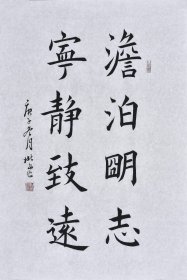 澹泊明志
寧静致遠
庚子冬月